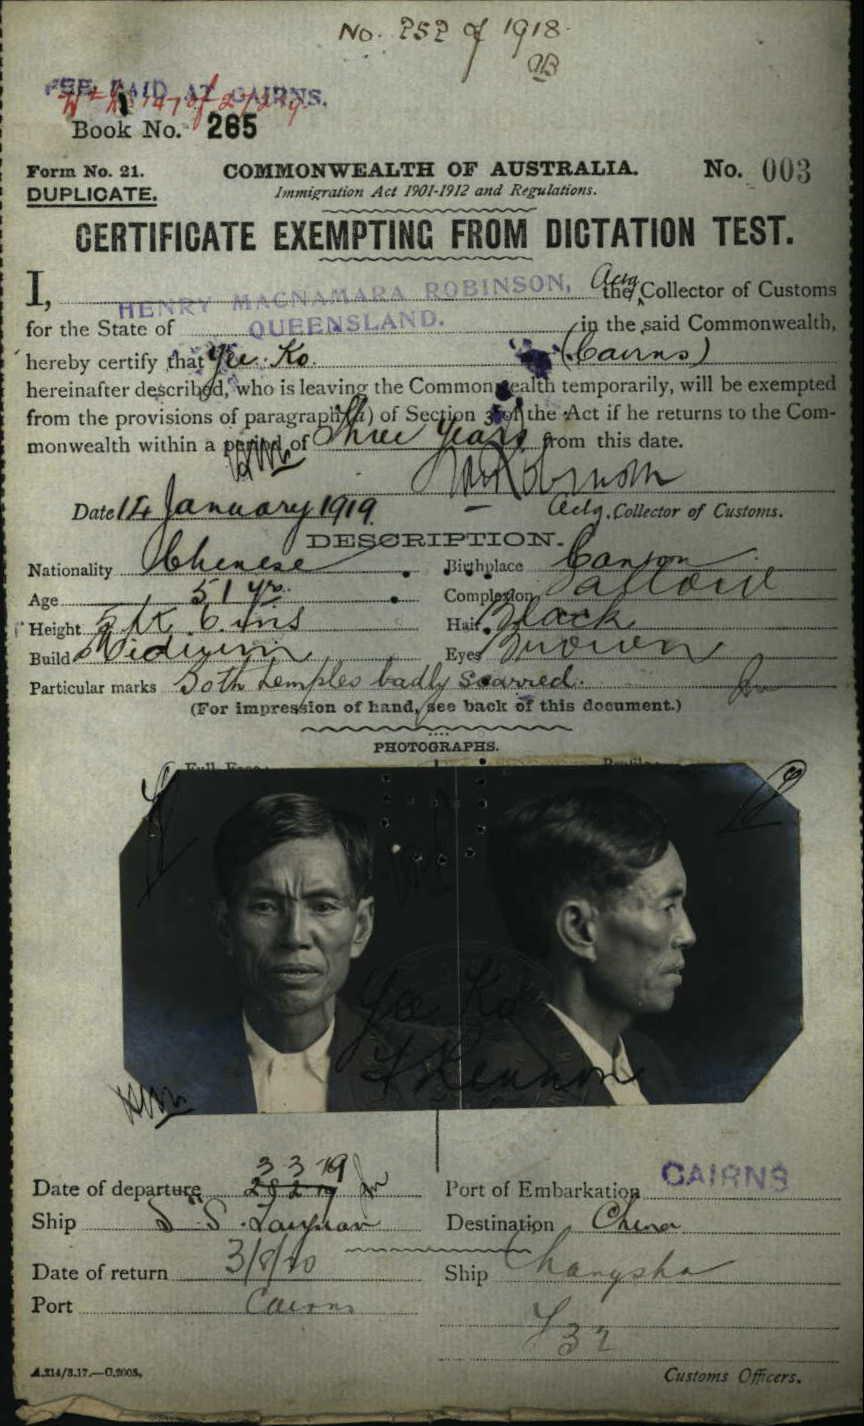 No. 252 of 1918.
FEE PAID AT CAIRNS.
Book No. 265
Form No. 21.
COMMONWEALTH OF AUSTRALIA.
No. 003
DUPLICATE.
Immigration Act 1901-1912 and Regulations.
CERTIFICATE EXEMPTING FROM DICTATION TEST.
I, HENRY MACNAMARA ROBINSON, Actg the Collector of Customs
for the State of QUEENSLAND. in the said Commonwealth,
hereby certify that Yee Ko. (Cairns)
hereinafter described, who is leaving the Commonwealth temporarily, will be exempted
from the provisions of paragraph (a) of Section 3 of the Act if he returns to the Com-
monwealth within a period of Three Years from this date.
HM Robinson
Date 14 January 1919. Actg. Collector of Customs.
DESCRIPTION.
Nationality Chinese
Birthplace Canton
Age 51 yrs
Complexion Sallow
Height 5 ft. 6 ins
Hair Black
Build Medium
Eyes Brown
Particular marks Both temples badly scarred.
(For impression of hand, see back of this document.)
PHOTOGRAPHS.
Full Face:
Profile:
Yee Ko
Date of departure 3 3 19
28 2 19
Port of Embarkation CAIRNS
Ship S.S. Taiyuan
Destination China
Date of return 3/8/20
Ship Changsha
Port Cairns
Customs Officers.